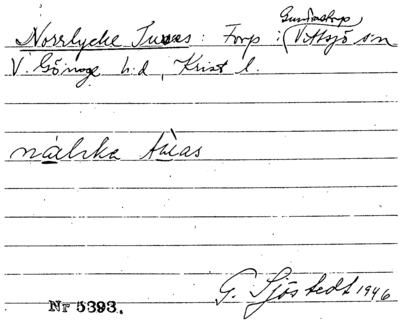 Norrlycke Tuvas : Torp i (Gundrastorp,) Vittsjö s:n
V. Göinge h.d, Krist l.
G. Sjöstedt 1946
Nr 5393.